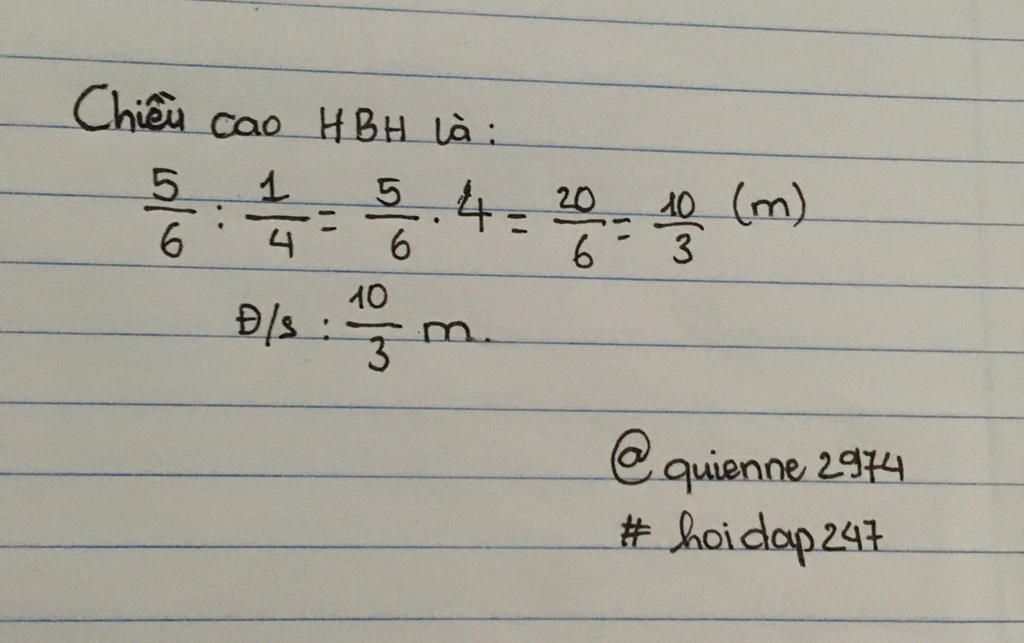 Chiều cao HBH là:
5/6 : 1/4 = 5/6 . 4 = 20/6 = 10/3 (m)
Đ/s : 10/3 m.
@quienne2974
# hoidap247